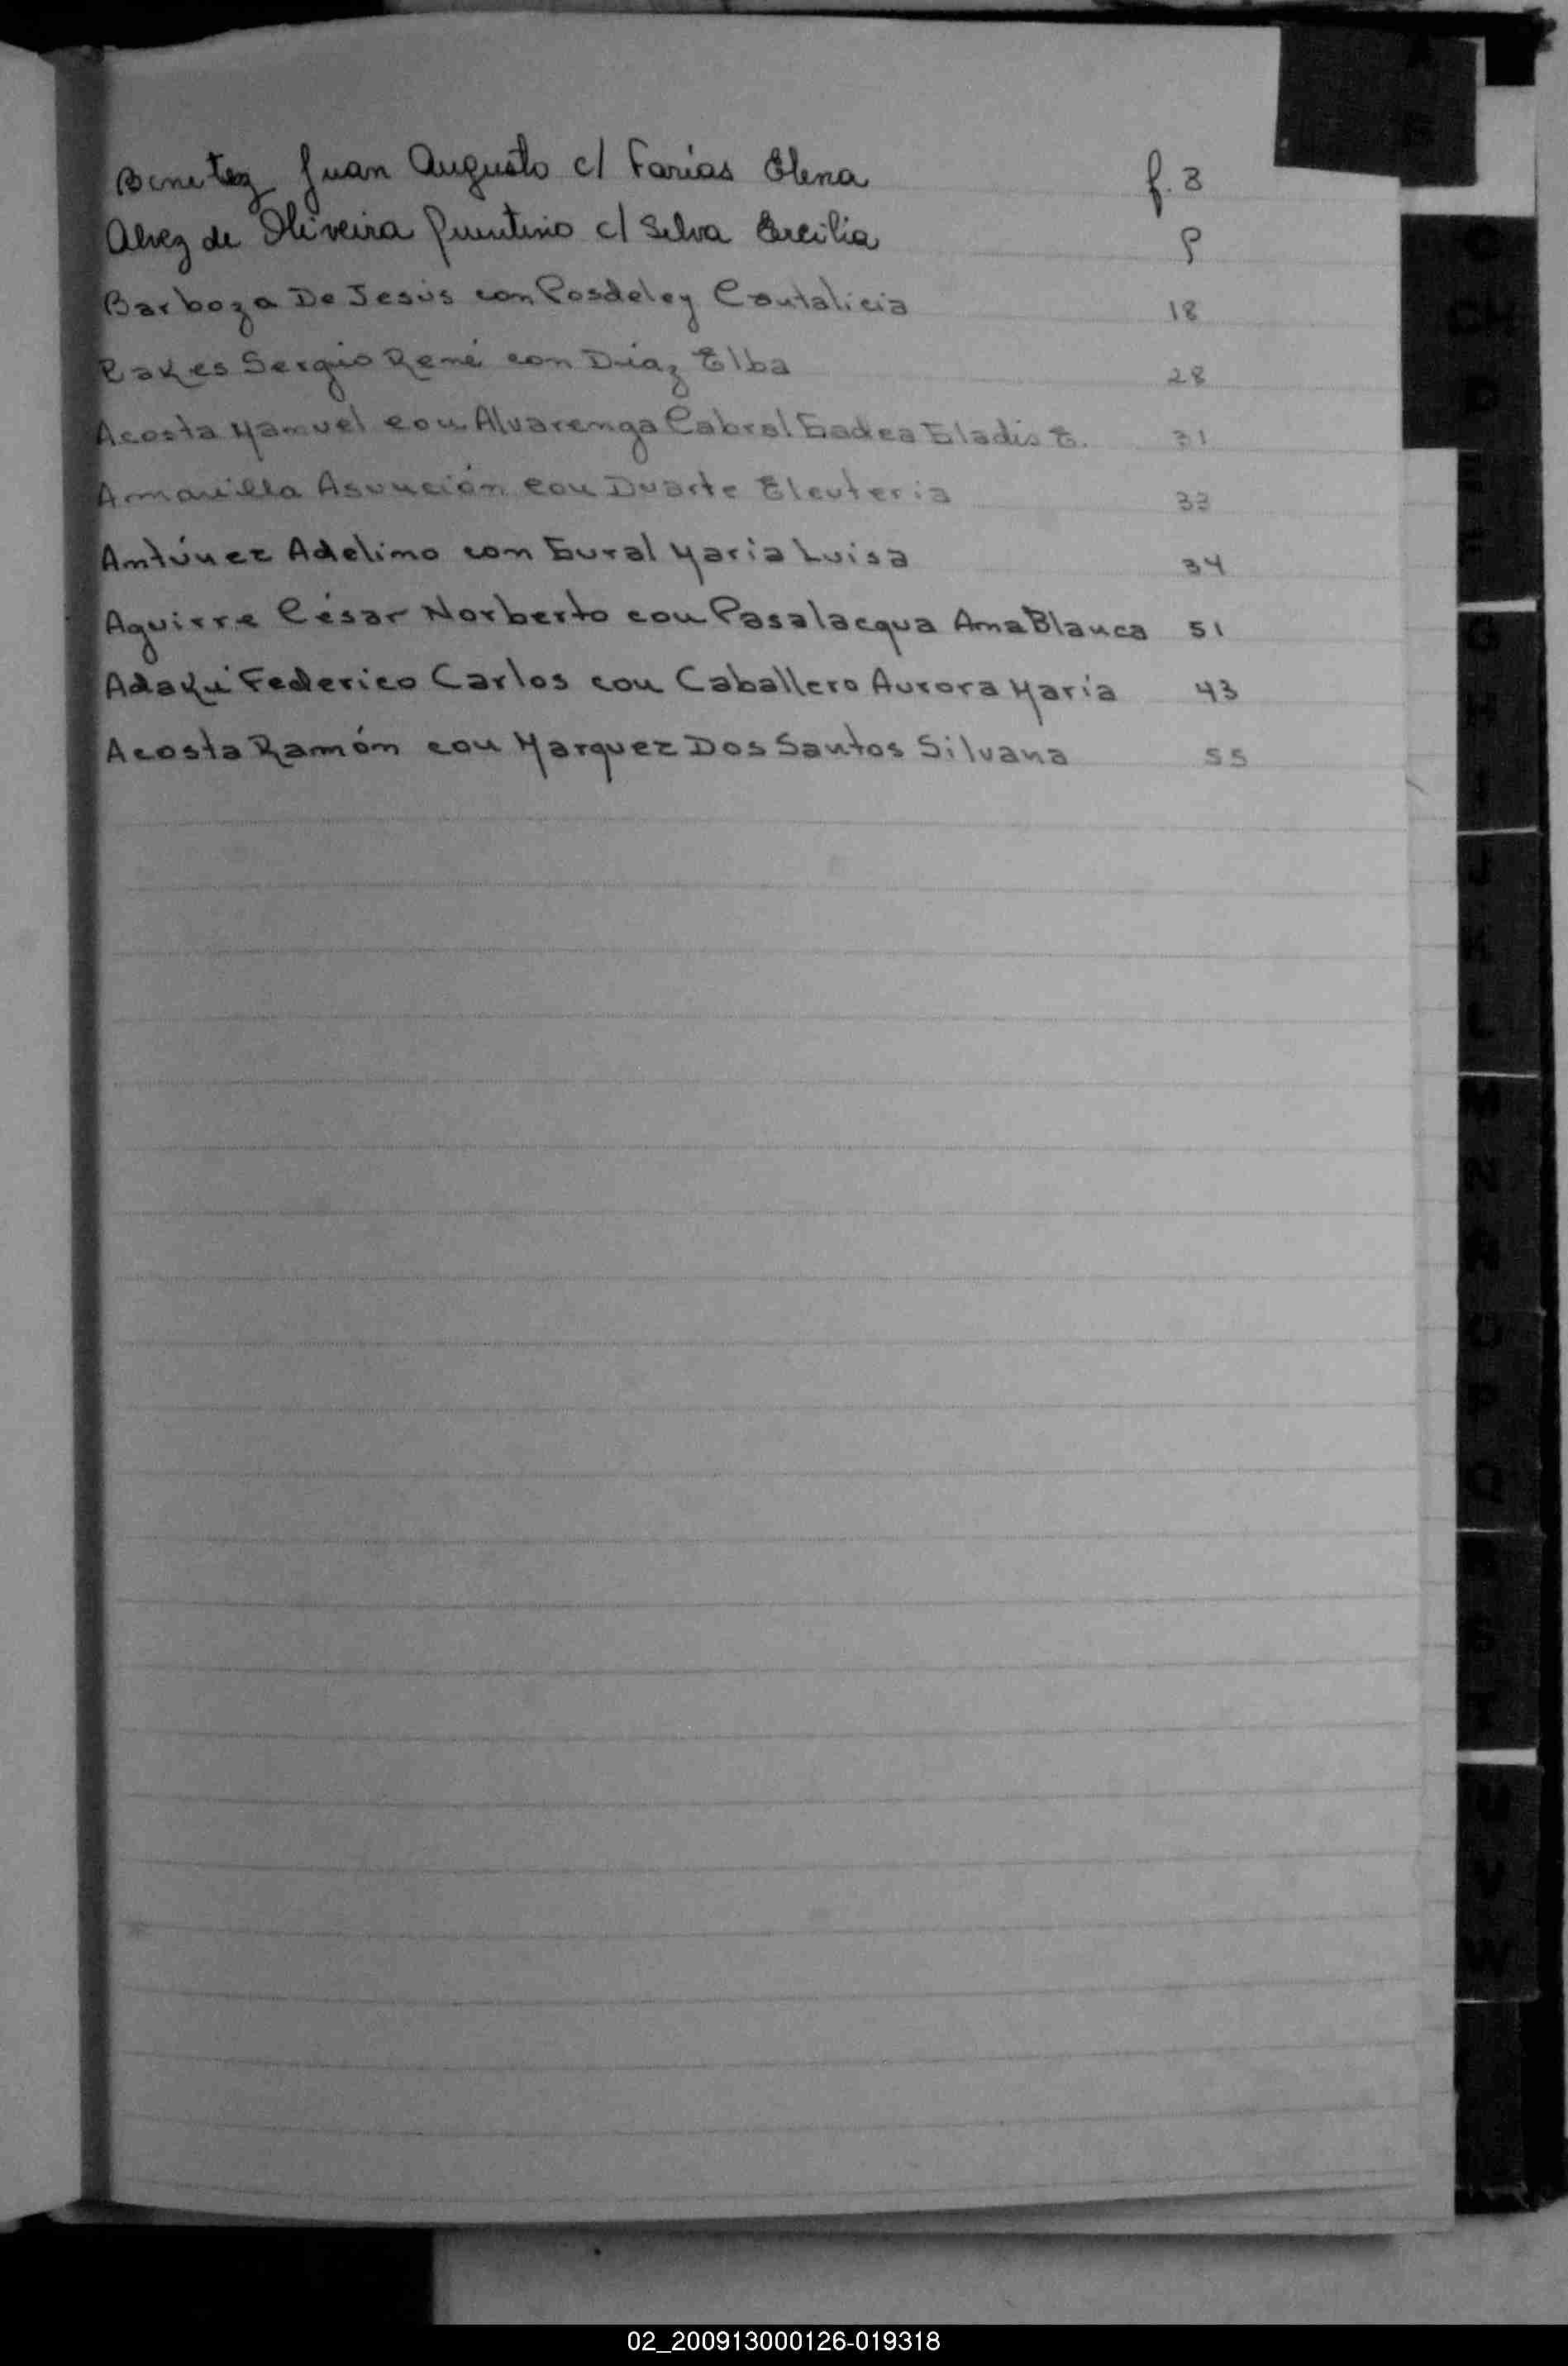 Benitez Juan Augusto c/ Farías Elena f. 3
Alvez de Oliveira Quintino c/ Silva Ercilia 9
Barboza De Jesús con Posdeley Cantalicia 18
Rakes Sergio René con Díaz Elba 28
Acosta Manuel con Alvarenga Cabral Gadea Gladis E. 31
Amarilla Asunción con Duarte Eleuteria 33
Antúnez Adelimo con Gural María Luisa 34
Aguirre César Norberto con Pasalacqua Ana Blanca 51
Federico Carlos con Caballero Aurora María 43
Acosta Ramón con Marquez Dos Santos Silvana 55
C
CH
D
E
F
G
H
I
J
K
L
M
N
Ñ
O
P
Q
R
S
T
U
V
W
02_200913000126-019318